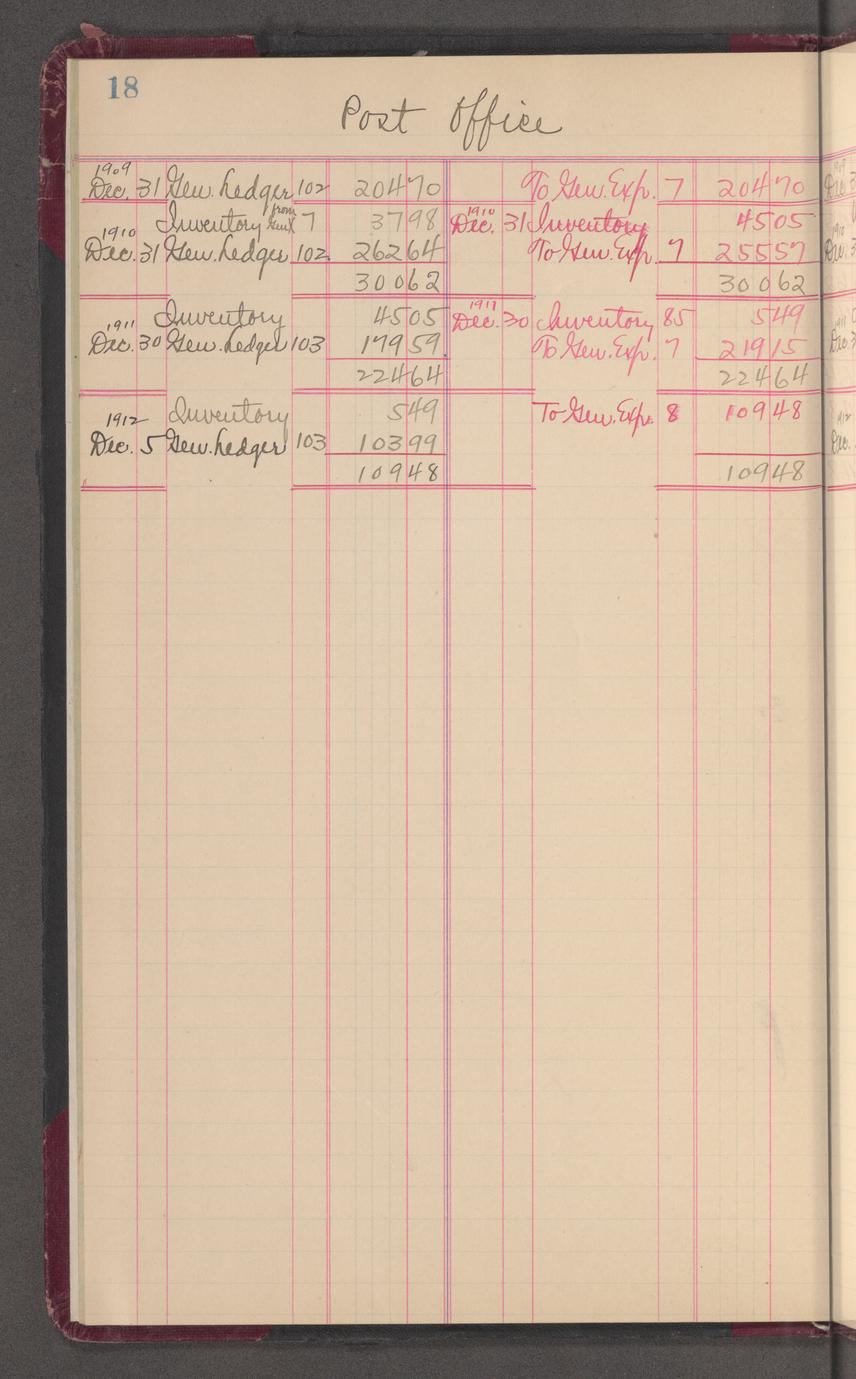 18
Post Office
1909
Dec. 31 Gen. Ledger 102 204 70 To Gen. Exp. 7 204 70
Inventory from Gen'l 7 37 98 1910 Dec. 31 Inventory 45 05
1910
Dec. 31 Gen. Ledger 102 262 64 To Gen. Exp. 7 255 57
300 62 300 62
Inventory 45 05 1911 Dec. 30 Inventory 85 5 49
1911
Dec. 30 Gen. Ledger 103 179 59 To Gen. Exp. 7 219 15
224 64 224 64
Inventory 5 49 To Gen. Exp. 8 109 48
1912
Dec. 5 Gen. Ledger 103 103 99
109 48 109 48